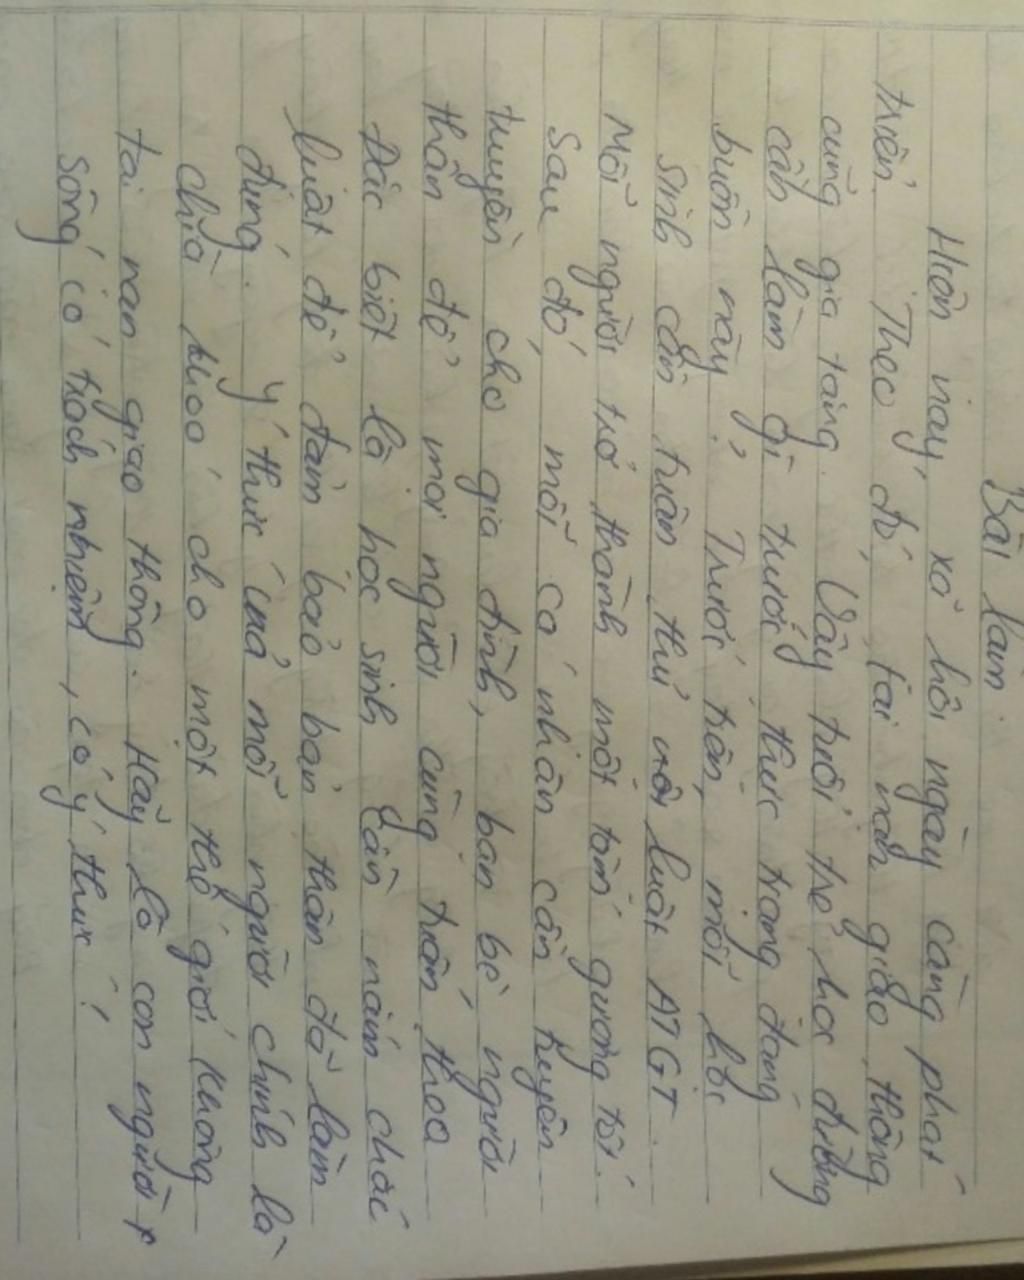 Bài làm
Hiện nay, xã hội ngày càng phát
triển. Theo đó, tai nạn giao thông
cũng gia tăng. Vậy tuổi trẻ học đường
cần làm gì trước thực trạng đáng
buồn này? Trước tiên, mỗi học
sinh cần tuân thủ với luật ATGT.
Mỗi người trở thành một tấm gương tốt.
Sau đó, mỗi cá nhân cần tuyên
truyền cho gia đình, bạn bè người
thân để mọi người cùng
Đặc biệt là học sinh cần nắm chắc
luật để đảm bảo bản thân đã làm
đúng. Ý thức của mỗi người chính là
chìa khoá cho một thế giới không
tai nạn giao thông. Hãy là con người
sống có trách nhiệm, có ý thức!